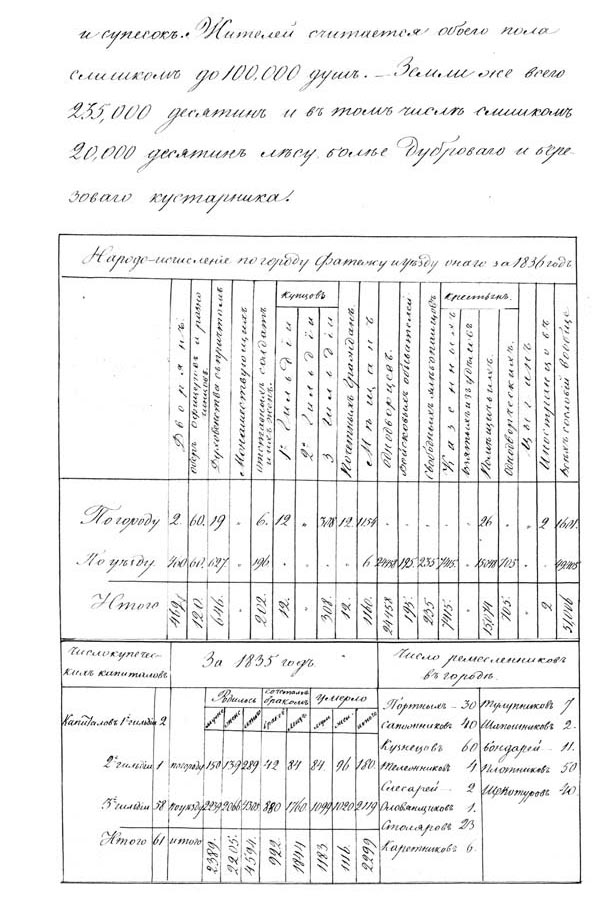 и супесокъ. Жителей считается обоего пола
слишкомъ до 100,000 душъ. – Земли же всего
235,000 десятинъ и въ томъ числѣ слишкомъ
20,000 десятинъ лѣсу болѣе Дуброваго и бере-
зоваго кустарника.
Народо-исчисленіе по городу Фатежу и уѣзду онаго за 1836 годъ
Дворянъ
оберъ офицеровъ и разно
чинцовъ
Духовенства съ причтомъ
Монашествующихъ
отставныхъ солдатъ
и ихъ женъ
купцовъ
1й Гильдіи
2й Гильдіи
3 Гильдіи
Почетныхъ Гражданъ
Мѣщанъ
однодворцовъ
Войсковыхъ обывателей
Свободныхъ хлѣбопашцовъ
крестьянъ
Казенныхъ
Помѣщичьихъ
Однодворческихъ
Цыганъ
Иностранцовъ
Всѣхъ сословій вообще
По городу 2. 60. 19 „ 6. 12 „ 308 12. 1154 . . . . . 26 . „ 2 1601.
По уѣзду 60. 627 „ 196 . . . . 6 24458 195. 235 7415. „ 15048 705 „ .
Итого 120. 646. „ 202. 12. „ 308. 12. 1160. 24458 195. 235 7415. „ 15074 705. „ 2 51,006
Число купечес-
кихъ капиталовъ
За 1835 годъ
Число ремесленниковъ
въ городѣ.
Родилось
сочеталось
бракомъ
умерло
Капиталовъ 1й гильдіи 2
2й гильдіи 1 по городу 150 139 289 42 84 84. 96 180.
3й гильдіи 58 по уѣзду 2239 2066 4305 880 1760 1099 1020 2119
Итого 61 итого 2389. 2205. 4594. 922. 1844 1183. 1116. 2299
Портныхъ – 30 Тулупниковъ 7
Сапожниковъ 40 Шапошниковъ 2.
Кузнецовъ 60 бондарей – 11.
Тележниковъ 4 Плотниковъ 50
Слесарей – 2 Щекотуровъ 40
Оловянщиковъ 1.
Столяровъ 23
Каретниковъ 6.